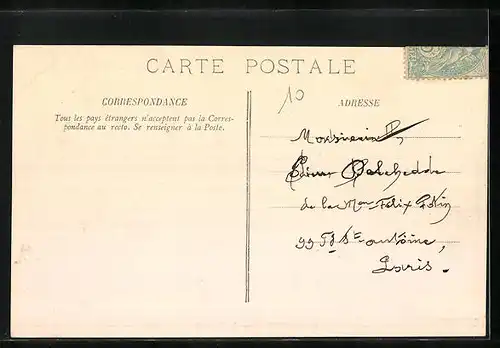 CARTE POSTALE
CORRESPONDANCE
Tous les pays étrangers n'acceptent pas la Corres-
pondance au recto. Se renseigner à la Poste.
10
ADRESSE
Monsieur
de la Mon Félix Potin
99 Fg St antoine,
Paris.